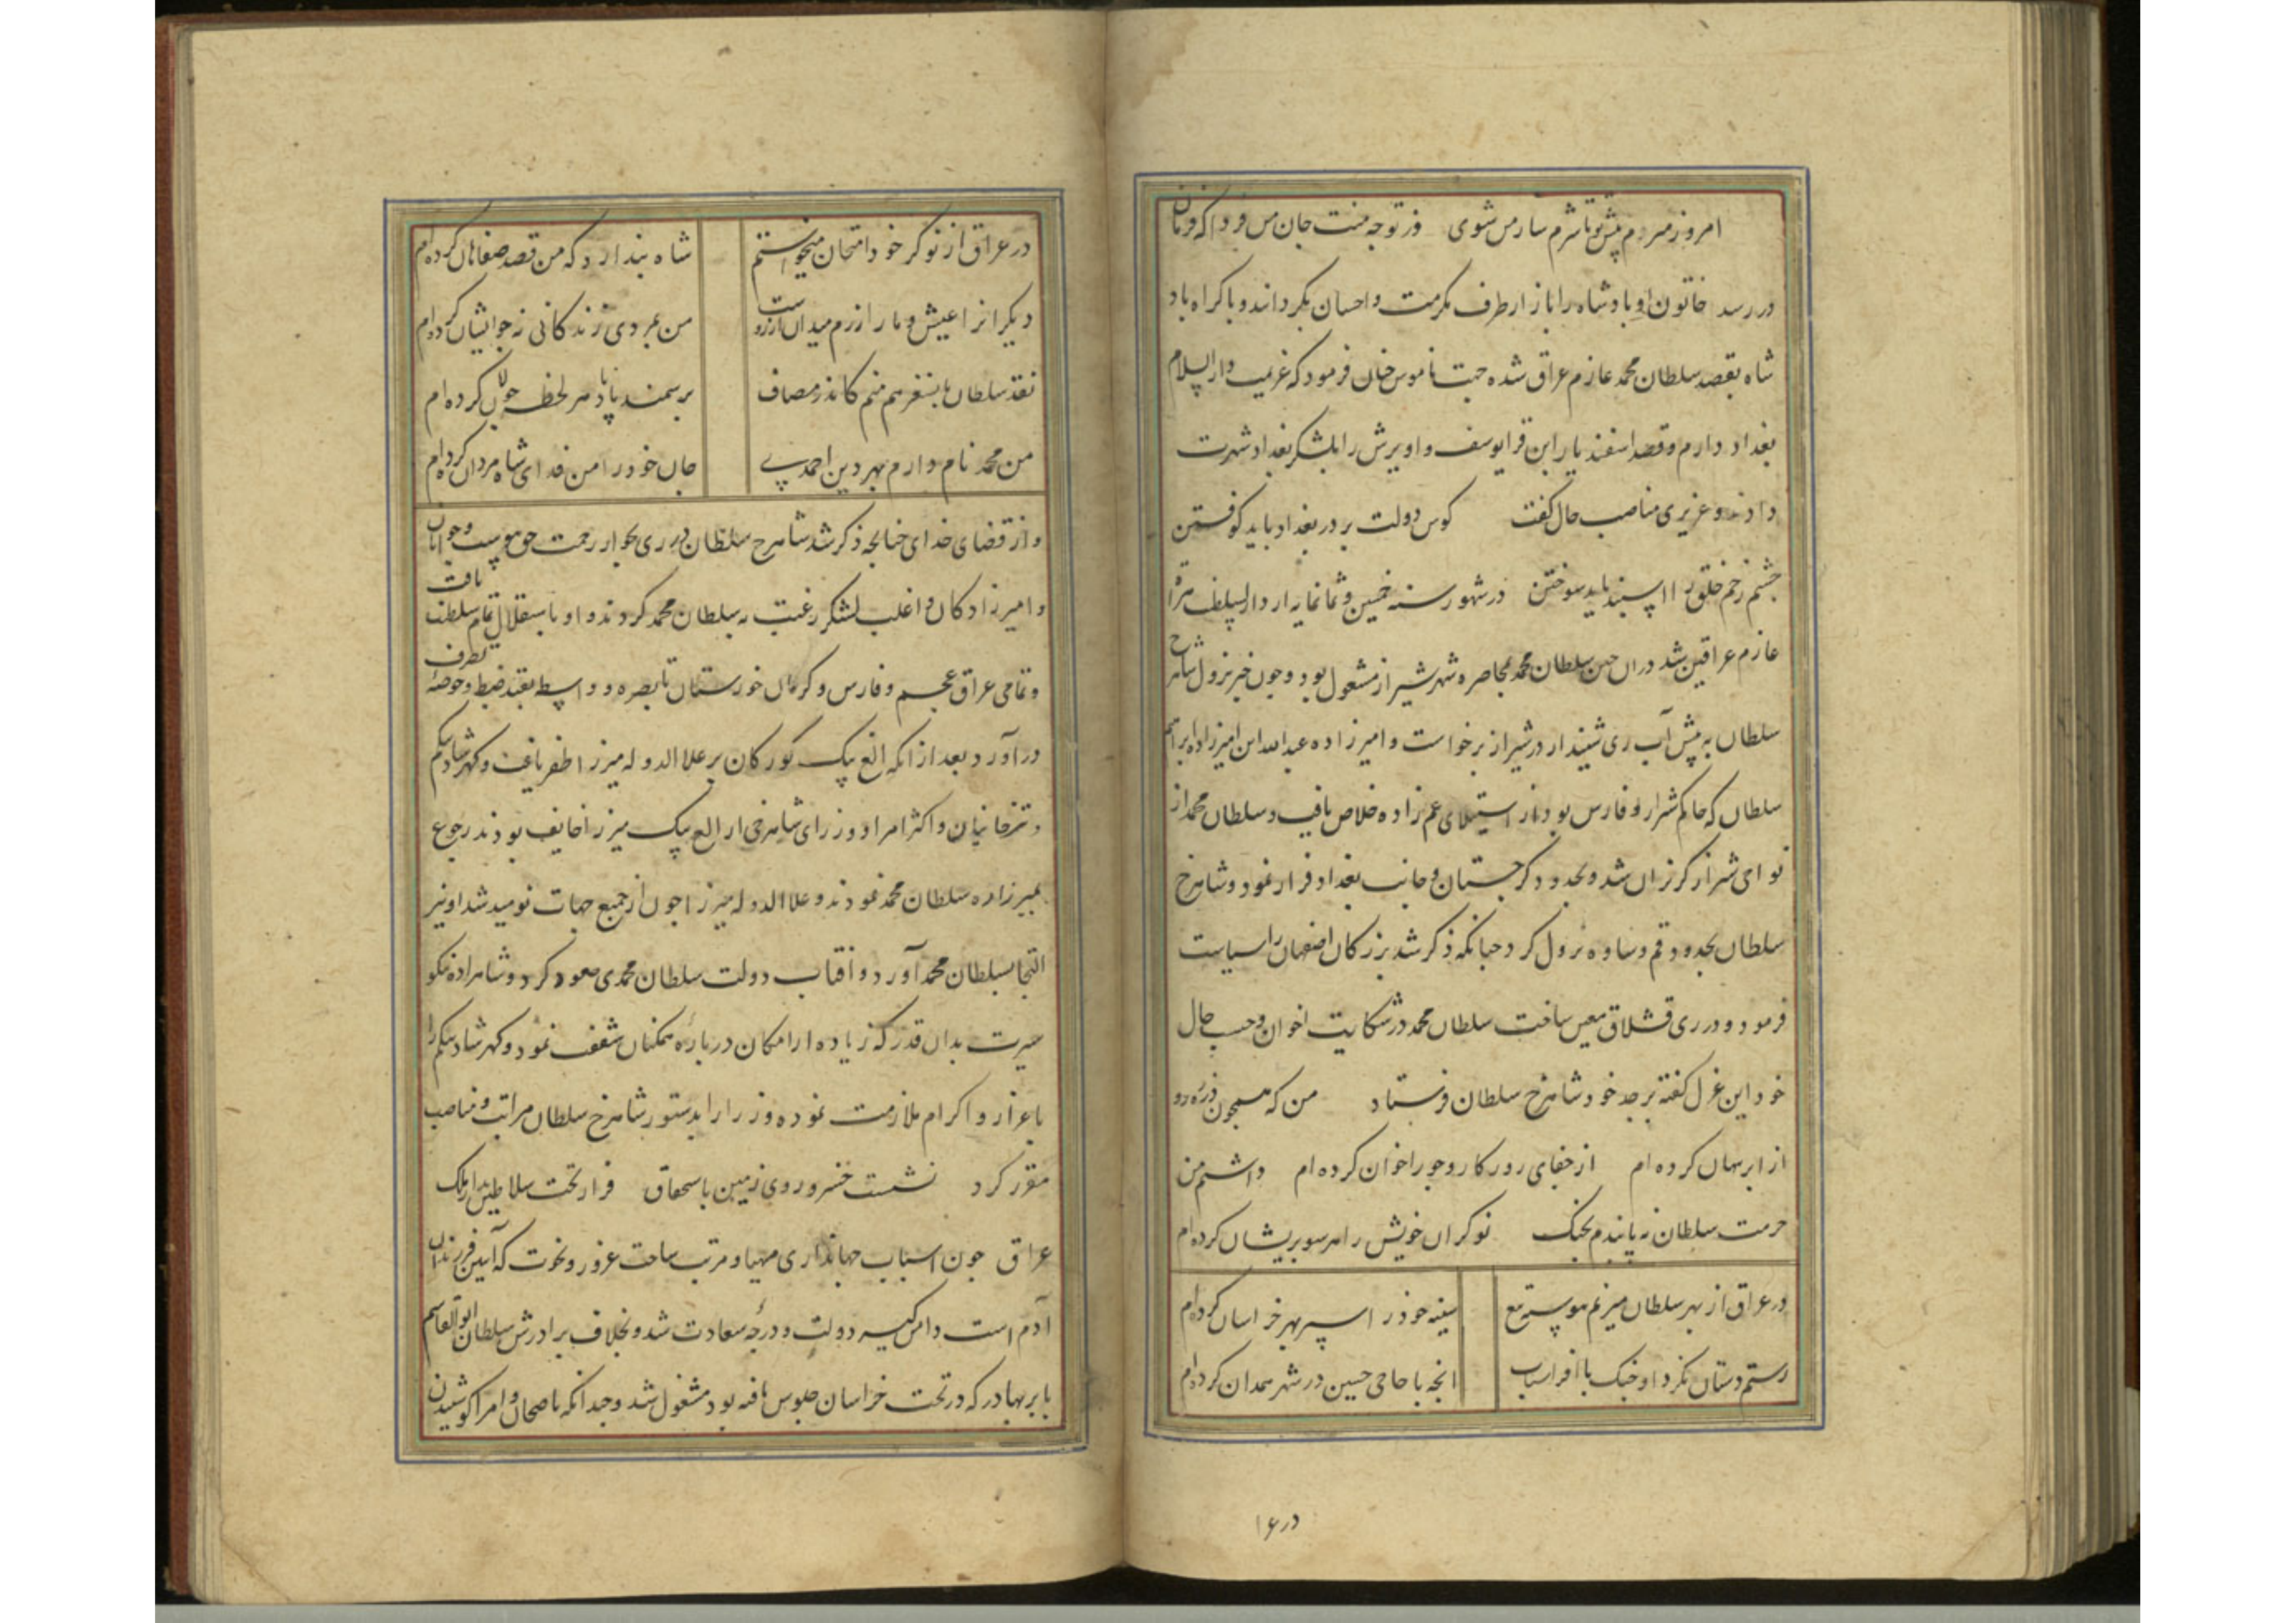 امروز میرم پیش تو تا شرمسار من شوی ور توجه منت جان من فردا که فرمان
در رسد خاتون او پادشاه را باز از طرف مکرمت و احسان بگرداند و باکراه پاد
شاه بقصد سلطان محمد عازم عراق شده جهت ناموس خان فرمود که عزیمت دار السلام
بغداد دارم و قصد اسفندیار ابن قرایوسف و اویرش را بلشکر بغداد شهرت
دادند و عزیزی مناصب حال گفت کوس دولت بر در بغداد باید کوفتن
چشم زخم خلق را اسپند باید سوختن در شهور سنه خمسین و ثمانمایه از دار السلطنه هراة
عازم عراقین شد دران حین سلطان محمد بمحاصره شهر شیراز مشغول بود و چون خبر نزول شاهرخ
سلطان به پیش آب ری شنید از در شیراز برخواست و امیرزاده عبدالله ابن امیرزاده ابراهیم
سلطان که حاکم شیراز و فارس بود از استیلای عم زاده خلاص یافت و سلطان محمد از
نوای شیراز گریزان شد و بحدود کرجستان و جانب بغداد فرار نمود و شاهرخ
سلطان بحدود قم و ساوه نزول کرد چنانکه ذکر شد بزرگان اصفهان را سیاست
فرمود و در ری قشلاق معین ساخت سلطان محمد در شکایت اخوان و حسب حال
خود این غزل گفته بر جد خود شاهرخ سلطان فرستاد من که همچون ذره رو
از ابر پنهان کرده ام از جفای روزگار و جور اخوان کرده ام داشتم من
حرمت سلطان نه پایندم بجنگ نوکران خویش را هر سو پریشان کرده ام
در عراق از بهر سلطان میزنم پیوسته تیغ سینه خود را سپر بهر خراسان کرده ام
رستم دستان نکرد او جنگ با افراسیاب آنچه با حاجی حسین در شهر همدان کرده ام
در ع ا
در عراق از نوکر خود امتحان میخواستم شاه پندارد که من قصد صفاهان کرده ام
دیگرانرا عیش و ما را رزم میدان آرزوست من بمردی زندگانی نه چو ایشان کرده ام
نقد سلطان بایسنغر هم منم کاندر مصاف بر سمند بادپا هر لحظه جولان کرده ام
من محمد نام دارم بهر دین احمدی جان خود را من فدای شاه مردان کرده ام
و از قضای خدای چنانچه ذکر شد شاهرخ سلطان در ری بجوار رحمت حق پیوست و جوانان
و امیرزادگان و اغلب لشکر رغبت به سلطان محمد کردند و او باستقلال تمام سلطنت یافت
و تمامی عراق عجم و فارس و کرمان خورستان تا بصره و واسط بقید ضبط و حوضه تصرف
درآورد بعد از انکه الغ بیک کورکان بر علا الدوله میرزا ظفر یافت و کهرشاد بیکم
و ترخانیان و اکثر امرا و وزرای شاهرخی از الغ بیک میرزا خایف بودند رجوع
بمیرزاده سلطان محمد نمودند و علا الدوله میرزا چون از جمیع جهات نومید شد او نیز
التجا بسلطان محمد آورد و آفتاب دولت سلطان محمدی صعود کرد و شاهزاده نیکو
سیرت بدان قدر که زیاده از امکان درباره همکنان شفقت نمود و کهرشاد بیکم را
باعزاز و اکرام ملازمت نموده وزرا را بدستور شاهرخ سلطان مراتب و مناصب
مقرر کرد نشست خسرو روی زمین باستحقاق فراز تخت سلاطین بدار ملک
عراق چون اسباب جهانداری مهیا و مرتب ساخت غرور و نخوت که آیین فرزندان
آدم است دامن گیر دولت و درجه سعادت شد و بخلاف برادرش سلطان ابو القاسم
بابر بهادر که در تخت خراسان جلوس یافته بود مشغول شد و چندانکه ناصحان و امرا کوشیدن